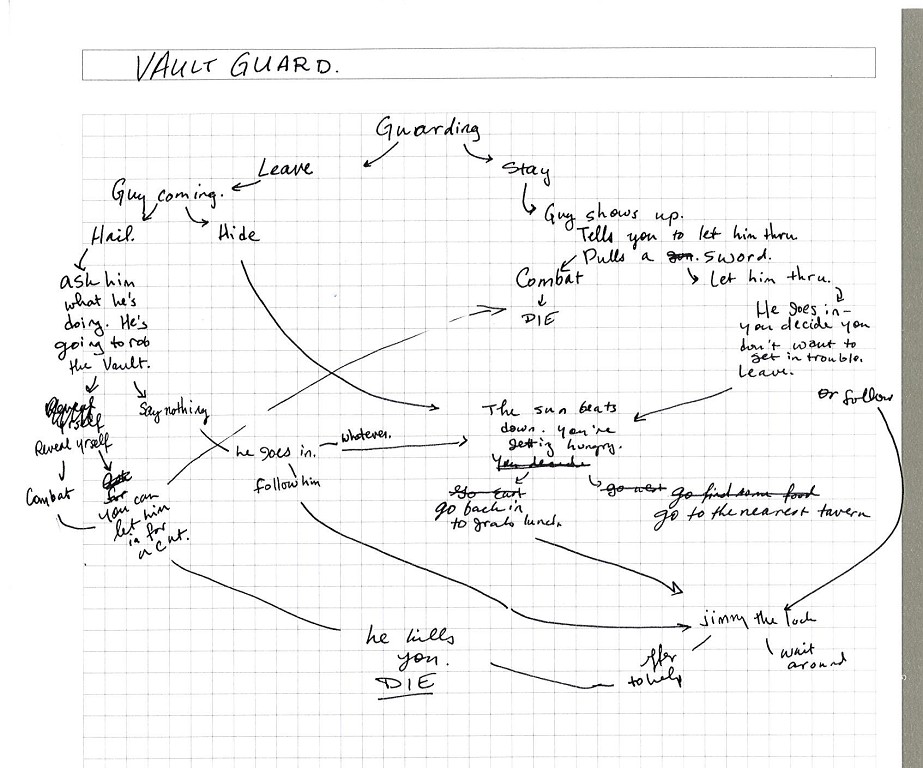 VAULT GUARD.
Guarding
Leave
Stay
Guy coming.
Guy shows up.
Tells you to let him thru
Pulls a gun. sword.
Hail.
Hide
Combat
DIE
Let him thru.
He goes in—
you decide you
don't want to
get in trouble.
Leave.
or follow
ask him
what he's
doing. He's
going to rob
the Vault.
Reveal
yrself
Reveal yrself
Say nothing
Combat
for
you can
let him
in for
a cut.
he goes in.
whatever.
follow him
The sun beats
down. you're
getting hungry.
You decide
go east
go back in
to grab lunch.
go west go find some food
go to the nearest tavern
jimmy the lock
offer
to help
wait
around
he kills
you.
DIE